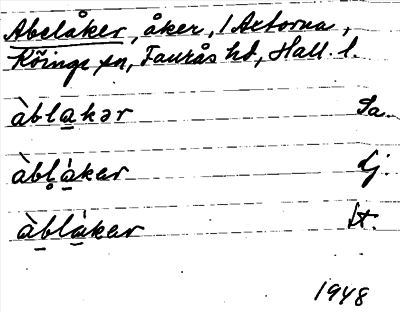 Abelåker, åker, 1 Axtorna,
Köinge sn, Faurås hd, Hall. l.
àblakər Sa.
àblákər Lj.
àblàkər St.
1948